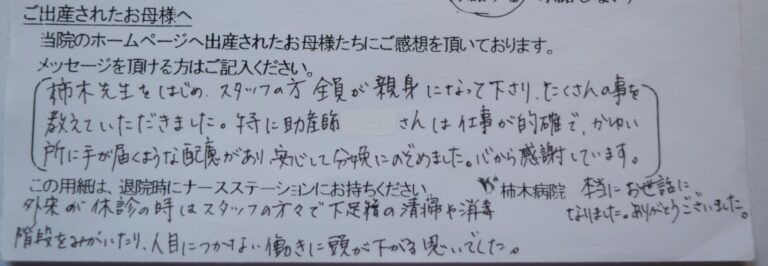 ご出産されたお母様へ
当院のホームページへ出産されたお母様たちにご感想を頂いております。
メッセージを頂ける方はご記入ください。
柿木先生をはじめ、スタッフの方全員が親身になって下さり、たくさんの事を
教えていただきました。特に助産師 さんは仕事が的確で、かゆい
所に手が届くような配慮があり安心して分娩にのぞめました。心から感謝しています。
この用紙は、退院時にナースステーションにお持ちください。 柿木病院
本当にお世話に
なりました。ありがとうございました。
外来が休診の時はスタッフの方々で下足箱の清掃や消毒
階段をみがいたり、人目につかない働きに頭が下がる思いでした。